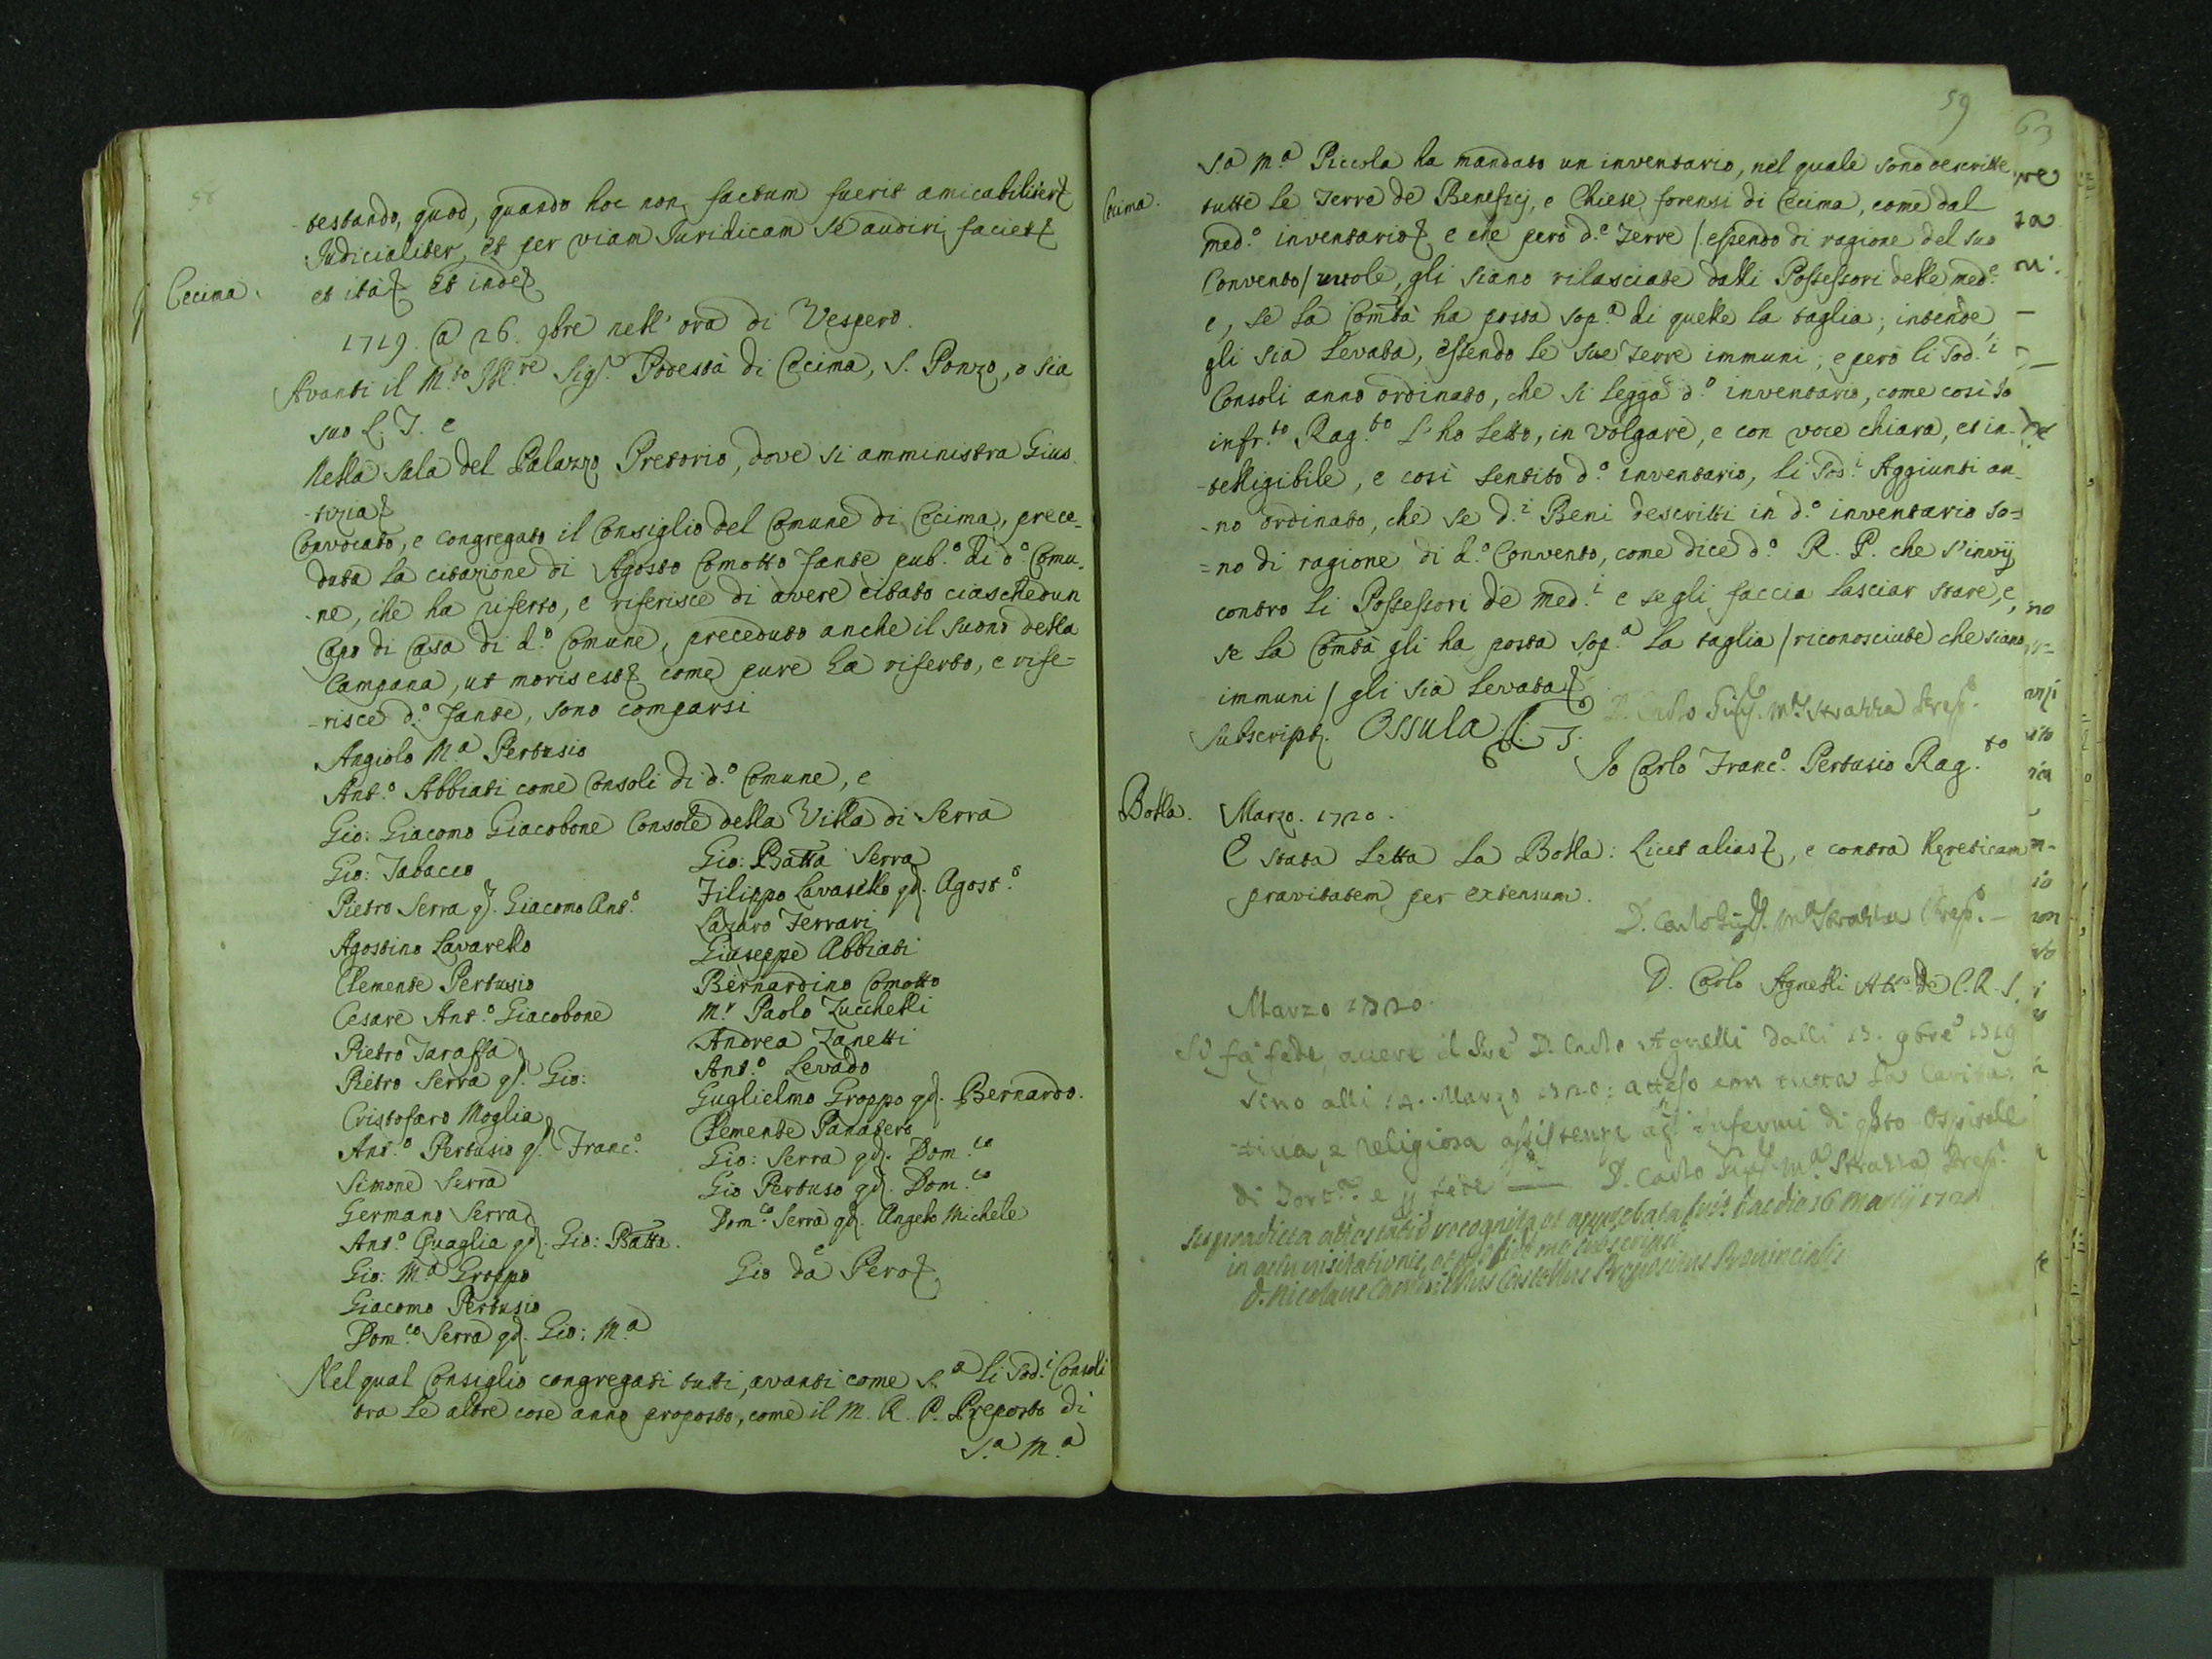 58
testando, quod, quando hoc non factum fuerit amicabiliter
Judicialiter, et per viam Juridicam se audiri faciet
Cecima. et ità et inde
1719. a 26. 9bre nell'ora di Vespero.
Avanti il M.to Ill.re Sig.r Podestà di Cecima, S. Ponzo, o sia
suo L. T. e
Nella sala del Palazzo Pretorio, dove si amministra Gius
-tizia
Convocato, e congregato il Consiglio del Comune di Cecima, prece-
duta la citazione di Agosto Comotto fante pub.o di d.o Comu-
-ne, che ha riferto, e riferisce di avere citato ciaschedun
Capo di Casa di d.o Comune, preceduto anche il suono della
Campana, ut moris est come pure ha riferto, e rife=
-risce d.o fante, sono comparsi
Angiolo M.a Pertusio
Ant.o Abbiati come Consoli di d.o Comune, e
Gio: Giacomo Giacobone Console della Villa di Serra
Gio: Tabacco
Pietro Serra q. Giacomo Ant.o
Agostino Lavarello
Clemente Pertusio
Cesare Ant.o Giacobone
Pietro Taraffa
Pietro Serra q. Gio:
Cristofaro Moglia
Ant.o Pertusio q. Franc.o
Simone Serra
Germano Serra
Ant.o Quaglia qd. Gio: Batta.
Gio: M.a Groppo
Giacomo Pertusio
Dom.co Serra qd. Gio: M.a
Gio: Batta Serra
Filippo Lavarello qd. Agost.o
Lazaro Ferrari
Giuseppe Abbiati
Bernardino Comotto
M.r Paolo Zucchelli
Andrea Zanetti
Ant.o Levado
Guglielmo Groppo qd. Bernardo.
Clemente Panatero
Gio: Serra qd. Dom.co
Gio Pertuso qd. Dom.co
Dom.co Serra qd. Angelo Michele
Gio da Pero
Nel qual Consiglio congregati tutti, avanti come s.a li sod.i Consoli
tra le altre cose anno proposto, come il M. R. P. Preposto di
S.a M.a
59
S.a M.a Piccola ha mandato un inventario, nel quale sono descritte
Cecima. tutte le Terre de Beneficj, e Chiese forensi di Cecima, come dal
med.o inventario e che però d.e Terre / essendo di ragione del suo
Convento / vuole, gli siano rilasciate dalli Possessori delle med.e
e, se la Comtà ha posta sop.a di quelle la taglia; intende
gli sia levata, essendo le sue terre immuni; e però li sod.i
Consoli anno ordinato, che si legga d.o inventario, come così Io
infr.to Rag.to l'ho letto, in volgare, e con voce chiara, et in-
-telligibile, e così sentito d.o inventario, li sod.i Aggiunti an-
-no ordinato, che se d.i Beni descritti in d.o inventario so=
=no di ragione di d.o Convento, come dice d.o R. P. che s'invij
contro li Possessori de med.i e se gli faccia lasciar stare, e
se la Comtà gli ha posta sop.a la taglia / riconosciute che siano
immuni / gli sia levata
Subscript. Ossula L. T.
D. Carlo Gius. M.a Strazza Prep.o
Io Carlo Franc.o Pertusio Rag.to
Bolla. Marzo. 1720.
È stata letta la Bolla: Licet alias, e contra Hereticam
pravitatem per extensum.
D. Carlo Gius. M.a Strazza Prep.o -
D. Carlo Agnelli Att.o de C. R. S.
Marzo 1720.
Si fà fede, avere il D. Carlo Agnelli dalli 13. 9bre 1719
sino alli 14. Marzo 1720: atteso con tutta la Carita-
-tiva, e religiosa assistenza agl'infermi di q.sto Ospitale
di Tort.a e p fede — D. Carlo Gius. M.a Strazza Prep.o
Supradicta attestatio recognita et approbata fuit hac die 16 Martij 1720
in actu visitationis, et pro fide me subscripsi
D. Nicolaus Castellus Praepositus Provincialis